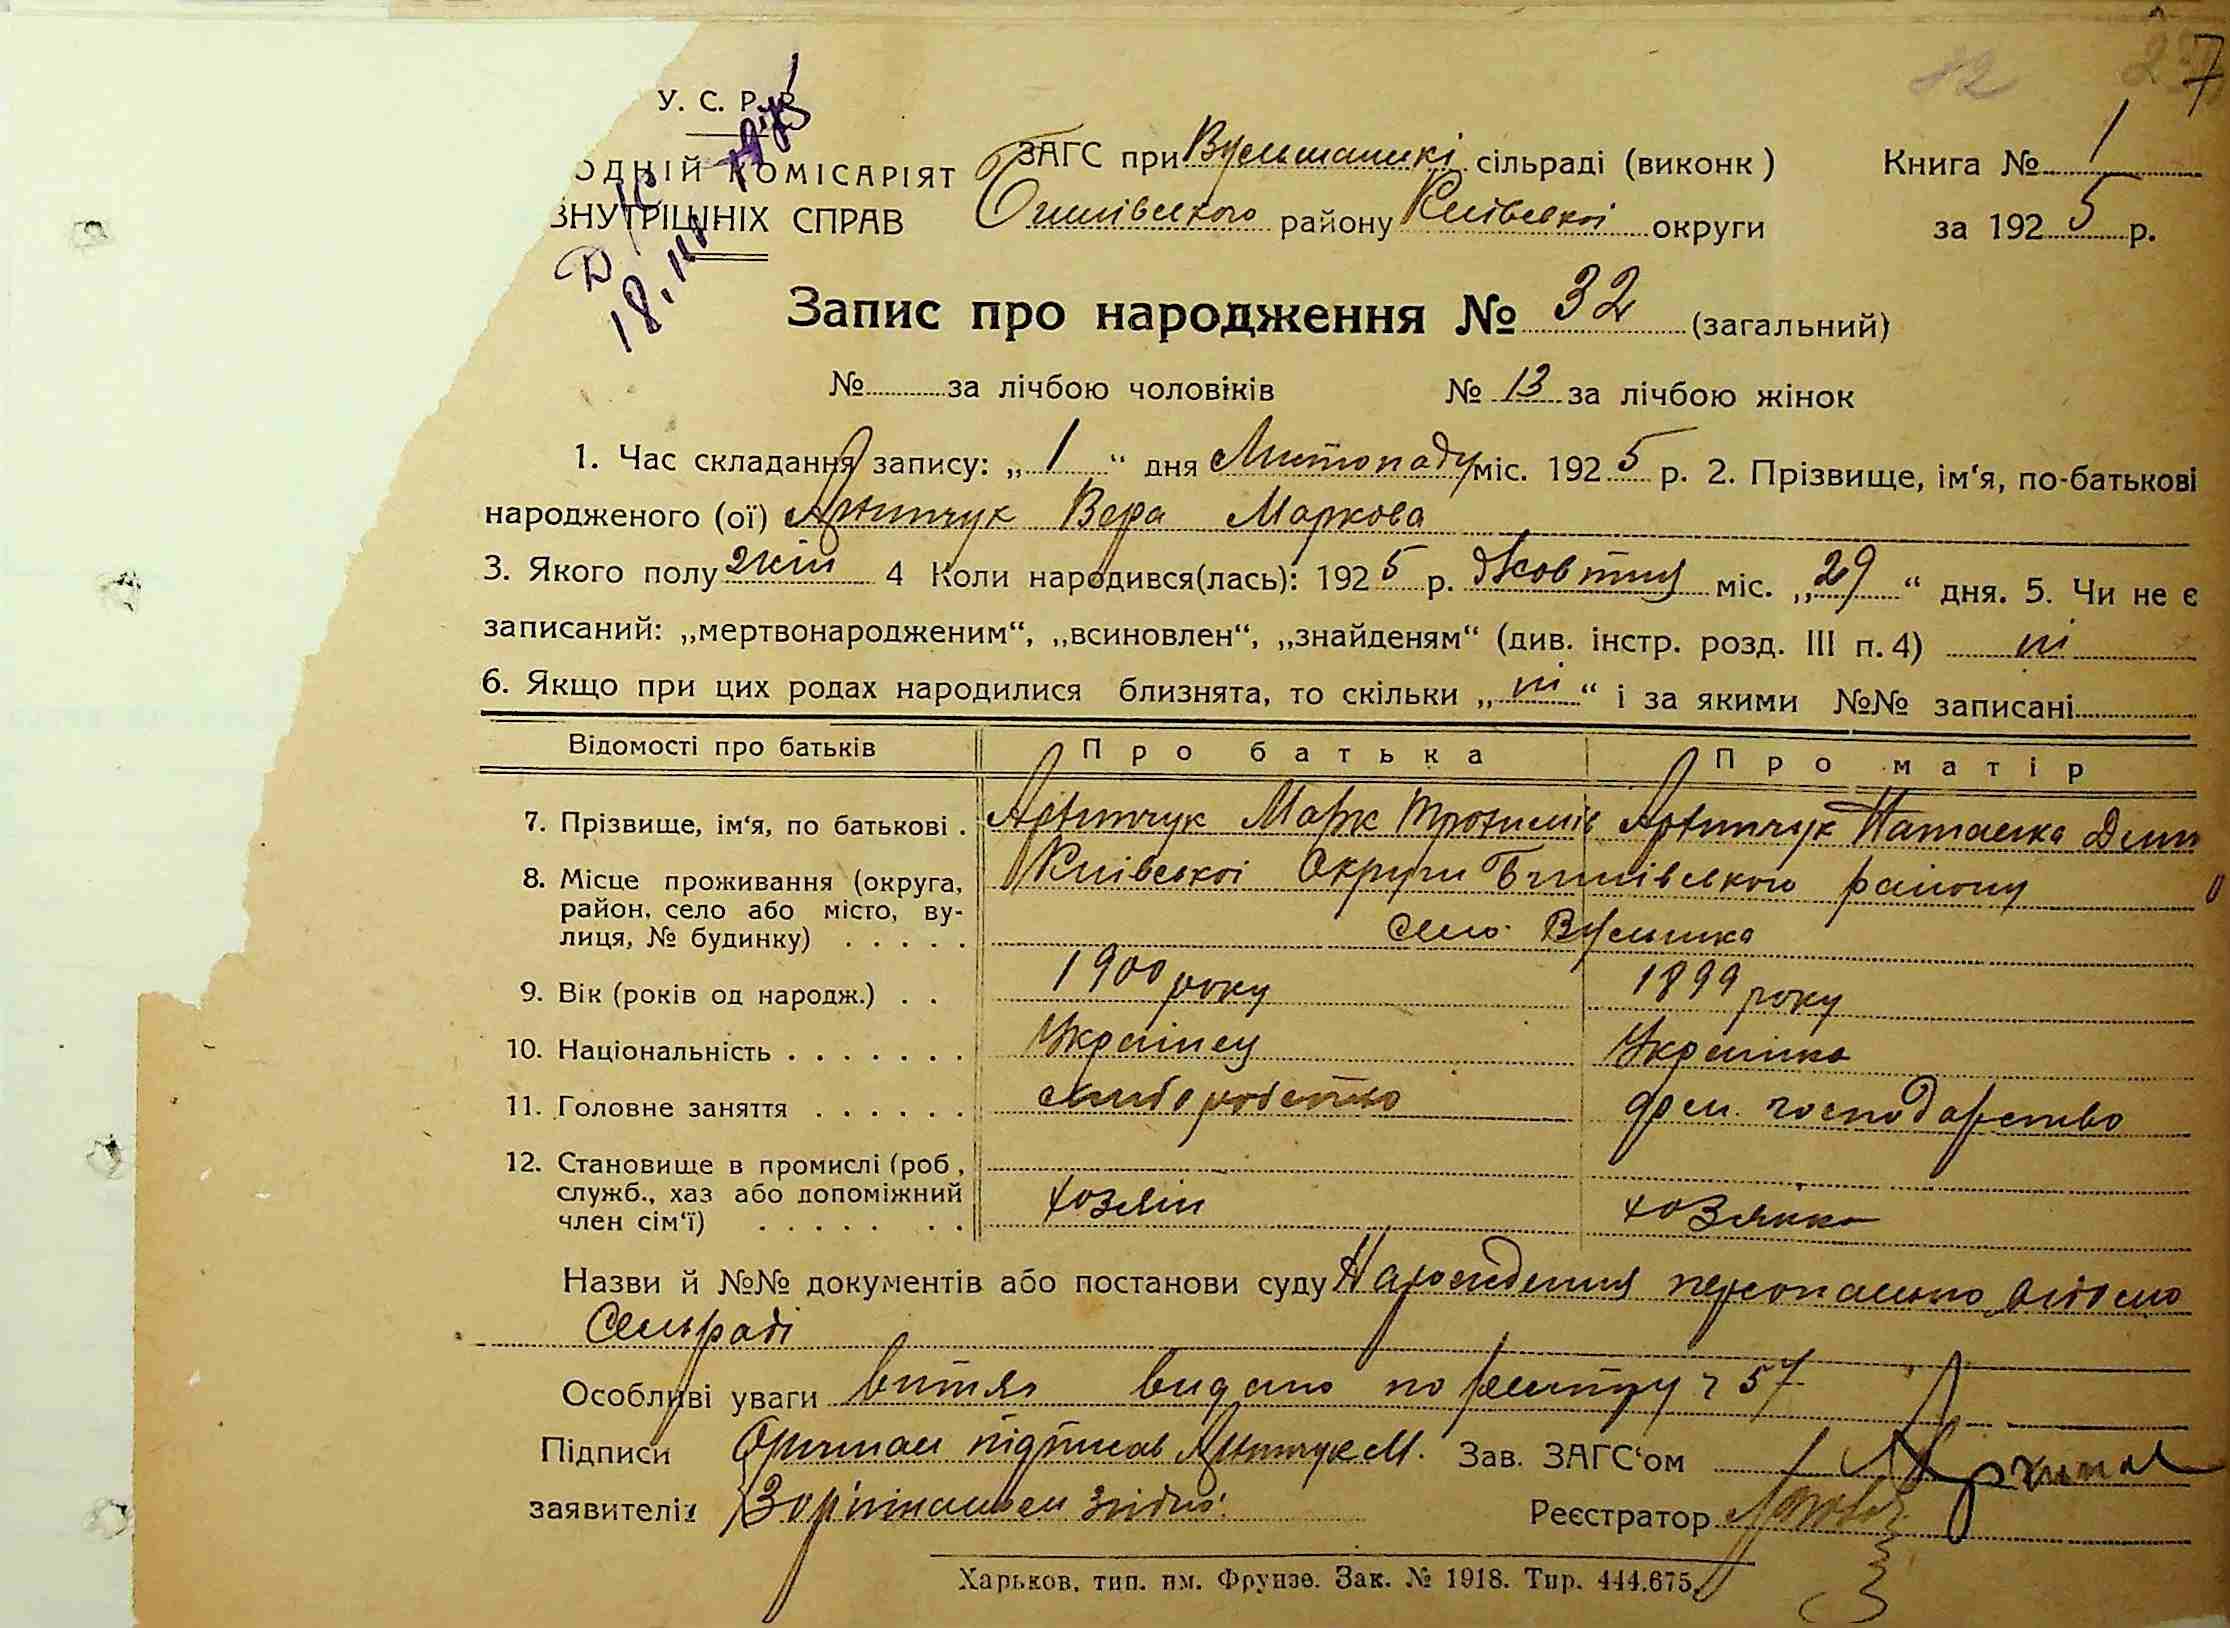 7
12
У. С. Р. Р.
ОДНІЙ КОМІСАРІЯТ
ВНУТРІШНІХ СПРАВ
18.
ЗАГС при сільраді (виконк)
Книга № 1
району Київської округи
за 1925 р.
Запис про народження № 32 (загальний)
№ за лічбою чоловіків № 13 за лічбою жінок
1. Час складання запису: „1“ дня Листопаду міс. 1925 р. 2. Прізвище, ім‘я, по-батькові
народженого (ої) Вера Маркова
3. Якого полу жін 4 Коли народився(лась): 1925 р. Жовтня міс. „29“ дня. 5. Чи не є
записаний: „мертвонародженим“, „всиновлен“, „знайденям“ (див. інстр. розд. III п. 4) ні
6. Якщо при цих родах народилися близнята, то скільки „ні“ і за якими №№ записані
Відомості про батьків Про батька Про матір
7. Прізвище, ім‘я, по батькові . Марк Трохимів Наталка Дми
8. Місце проживання (округа, Київської Округи району
район, село або місто, ву-
лиця, № будинку) . . . . . Село
9. Вік (років од народж.) . . 1900 року 1899 року
10. Національність . . . . . . . Українец Українка
11. Головне заняття . . . . . . хліборобство господарство
12. Становище в промислі (роб,
служб., хаз або допоміжний хозяін хозяйка
член сім‘ї) . . . . . . .
Назви й №№ документів або постанови суду Народження персонально відомо
Сельраді
Особливі уваги витяг видано по реєстру 57
Підписи Оригінал підписав М. Зав. ЗАГС‘ом
заявителів З оригіналом згідно: Реєстратор
Харьков, тип. им. Фрунзе. Зак. № 1918. Тир. 444.675.